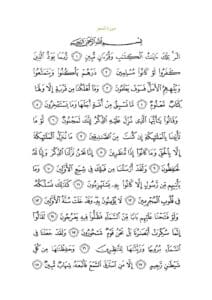 سورة الحجر
بسم الله الرحمن الرحيم
الٓر تِلْكَ ءَايَٰتُ ٱلْكِتَٰبِ وَقُرْءَانٍ مُّبِينٍ ١ رُّبَمَا يَوَدُّ ٱلَّذِينَ
كَفَرُوا۟ لَوْ كَانُوا۟ مُسْلِمِينَ ٢ ذَرْهُمْ يَأْكُلُوا۟ وَيَتَمَتَّعُوا۟
وَيُلْهِهِمُ ٱلْأَمَلُ فَسَوْفَ يَعْلَمُونَ ٣ وَمَآ أَهْلَكْنَا مِن قَرْيَةٍ إِلَّا وَلَهَا
كِتَابٌ مَّعْلُومٌ ٤ مَّا تَسْبِقُ مِنْ أُمَّةٍ أَجَلَهَا وَمَا يَسْتَـْٔخِرُونَ ٥
وَقَالُوا۟ يَٰٓأَيُّهَا ٱلَّذِى نُزِّلَ عَلَيْهِ ٱلذِّكْرُ إِنَّكَ لَمَجْنُونٌ ٦ لَّوْ مَا
تَأْتِينَا بِٱلْمَلَٰٓئِكَةِ إِن كُنتَ مِنَ ٱلصَّٰدِقِينَ ٧ مَا نُنَزِّلُ ٱلْمَلَٰٓئِكَةَ
إِلَّا بِٱلْحَقِّ وَمَا كَانُوٓا۟ إِذًا مُّنظَرِينَ ٨ إِنَّا نَحْنُ نَزَّلْنَا ٱلذِّكْرَ وَإِنَّا لَهُۥ
لَحَٰفِظُونَ ٩ وَلَقَدْ أَرْسَلْنَا مِن قَبْلِكَ فِى شِيَعِ ٱلْأَوَّلِينَ ١٠ وَمَا
يَأْتِيهِم مِّن رَّسُولٍ إِلَّا كَانُوا۟ بِهِۦ يَسْتَهْزِءُونَ ١١ كَذَٰلِكَ نَسْلُكُهُۥ
فِى قُلُوبِ ٱلْمُجْرِمِينَ ١٢ لَا يُؤْمِنُونَ بِهِۦ وَقَدْ خَلَتْ سُنَّةُ ٱلْأَوَّلِينَ ١٣
وَلَوْ فَتَحْنَا عَلَيْهِم بَابًا مِّنَ ٱلسَّمَآءِ فَظَلُّوا۟ فِيهِ يَعْرُجُونَ ١٤ لَقَالُوٓا۟
إِنَّمَا سُكِّرَتْ أَبْصَٰرُنَا بَلْ نَحْنُ قَوْمٌ مَّسْحُورُونَ ١٥ وَلَقَدْ جَعَلْنَا فِى
ٱلسَّمَآءِ بُرُوجًا وَزَيَّنَّٰهَا لِلنَّٰظِرِينَ ١٦ وَحَفِظْنَٰهَا مِن كُلِّ
شَيْطَٰنٍ رَّجِيمٍ ١٧ إِلَّا مَنِ ٱسْتَرَقَ ٱلسَّمْعَ فَأَتْبَعَهُۥ شِهَابٌ مُّبِينٌ ١٨